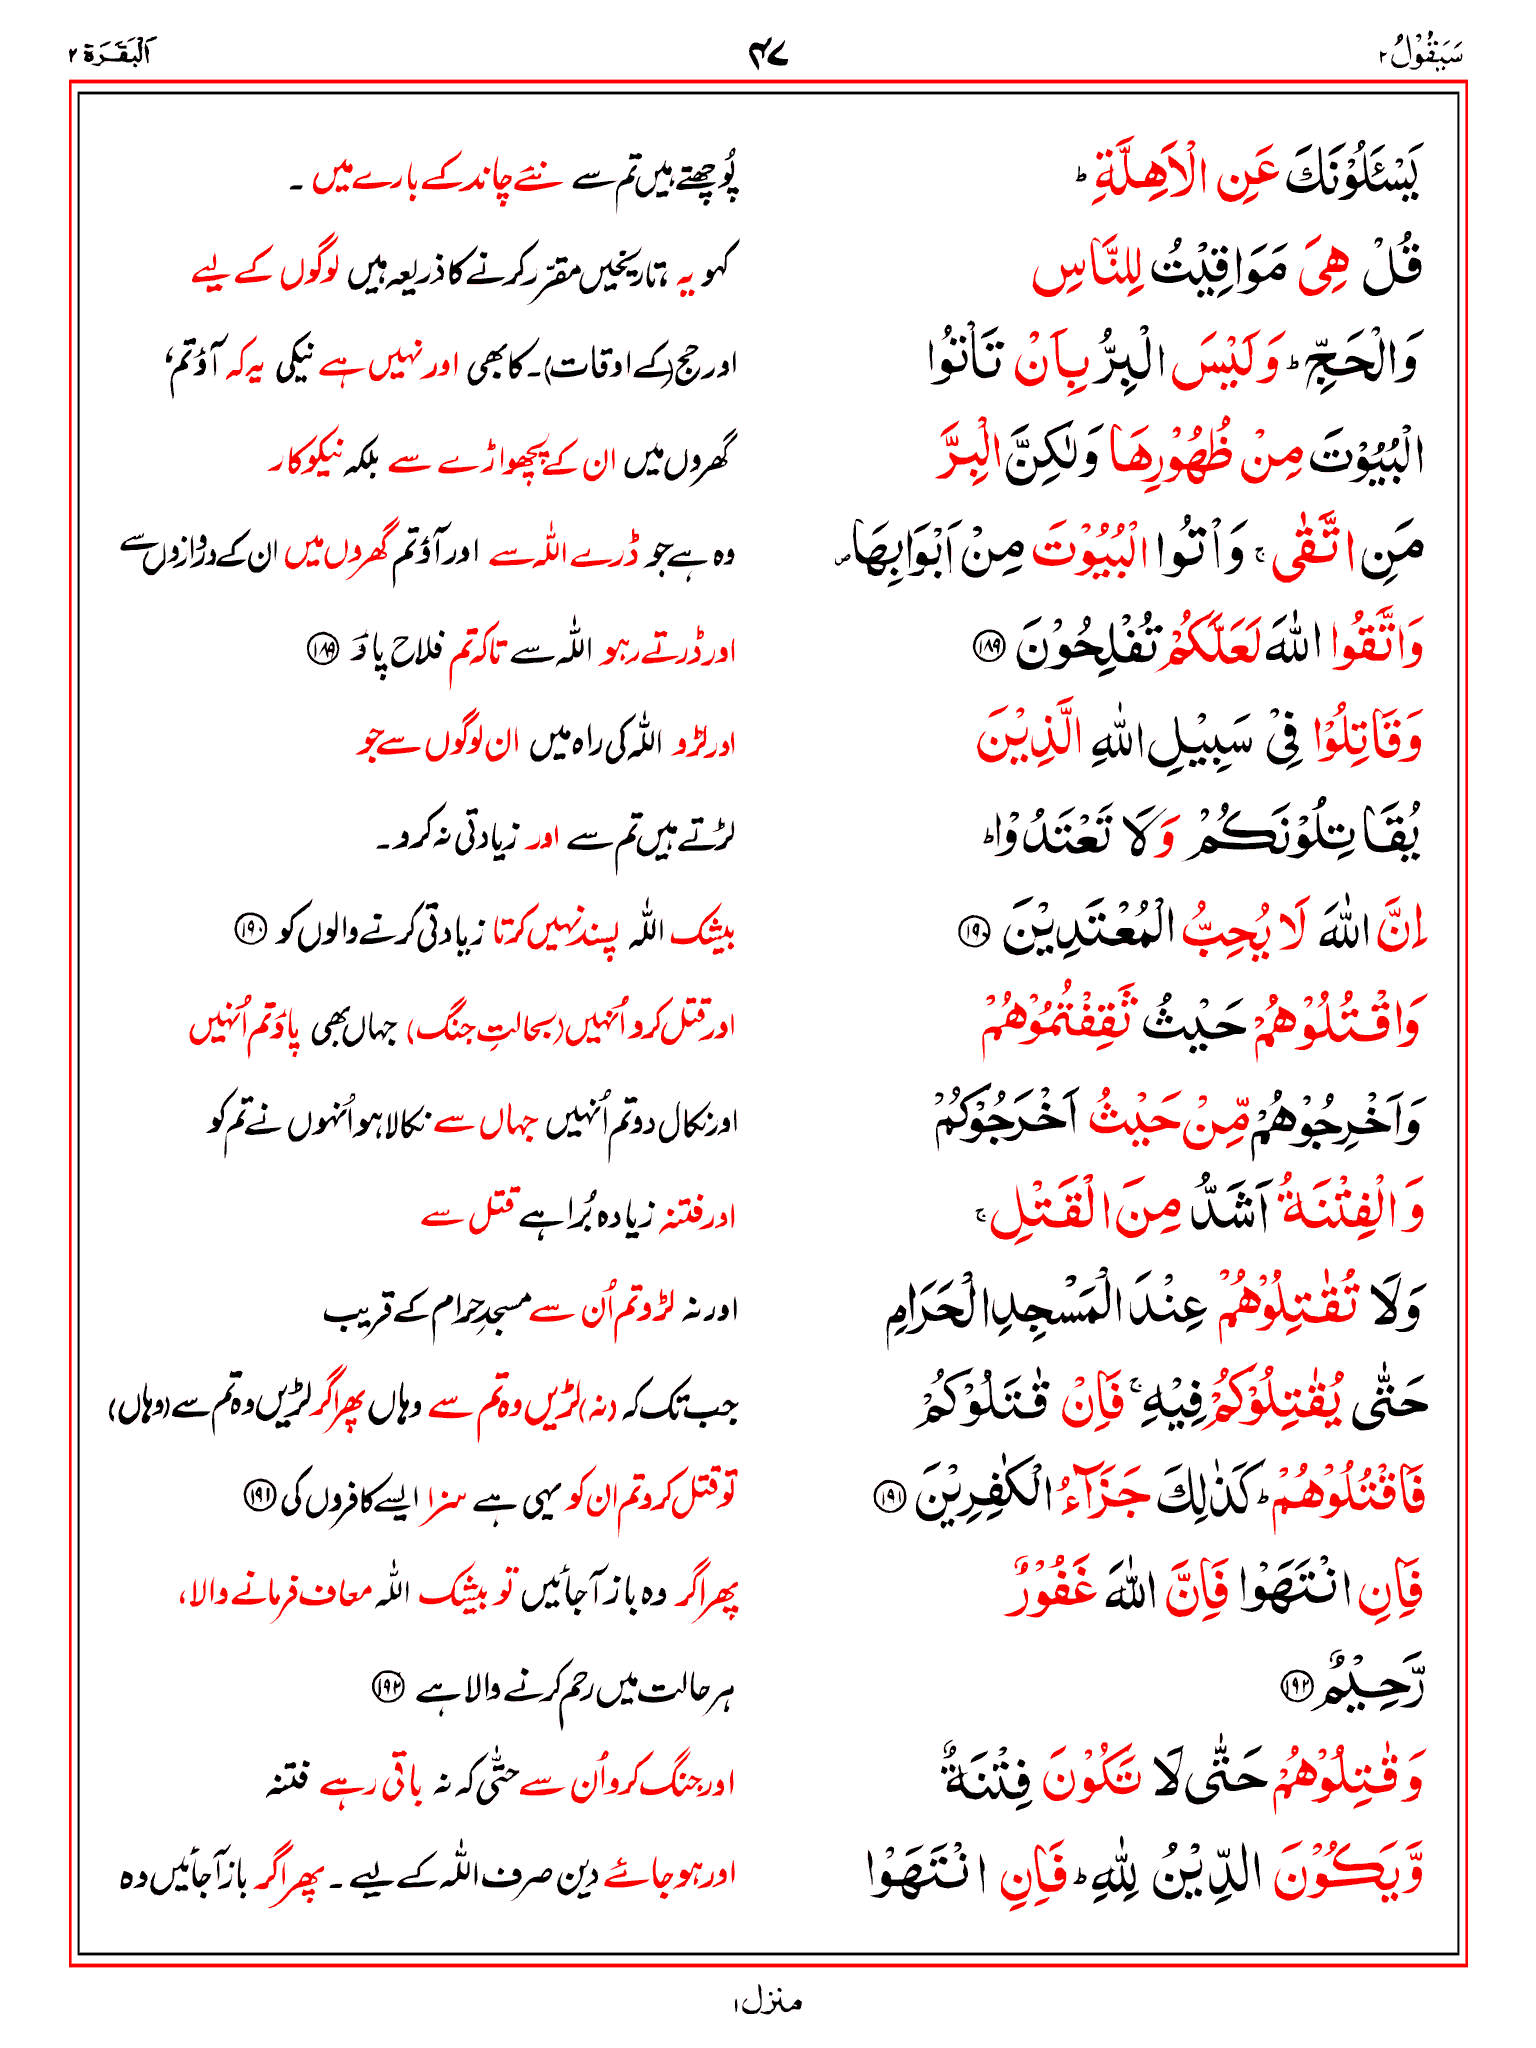 سَيَقُوْلُ ۲ ۴۷ اَلْبَقَرَة ۲
يَسْـَٔلُوْنَكَ عَنِ الْاَهِلَّةِ ؕ پُوچھتے ہیں تم سے نئے چاند کے بارے میں ۔
قُلْ هِىَ مَوَاقِيْتُ لِلنَّاسِ کہو یہ تاریخیں مقرّر کرنے کا ذریعہ ہیں لوگوں کے لیے
وَالْحَجِّ ؕ وَلَيْسَ الْبِرُّ بِاَنْ تَاْتُوا اور حج (کے اوقات) ۔ کا بھی اور نہیں ہے نیکی یہ کہ آؤ تم‘
الْبُيُوْتَ مِنْ ظُهُوْرِهَا وَلٰكِنَّ الْبِرَّ گھروں میں ان کے پچھواڑے سے بلکہ نیکوکار
مَنِ اتَّقٰى ۚ وَاْتُوا الْبُيُوْتَ مِنْ اَبْوَابِهَا ص وہ ہے جو ڈرے اللہ سے اور آؤ تم گھروں میں ان کے دروازوں سے
وَاتَّقُوا اللّٰهَ لَعَلَّكُمْ تُفْلِحُوْنَ ۱۸۹ اور ڈرتے رہو اللہ سے تاکہ تم فلاح پاؤ ۱۸۹
وَقَاتِلُوْا فِىْ سَبِيْلِ اللّٰهِ الَّذِيْنَ اور لڑو اللہ کی راہ میں ان لوگوں سے جو
يُقَاتِلُوْنَكُمْ وَلَا تَعْتَدُوْا ؕ لڑتے ہیں تم سے اور زیادتی نہ کرو ۔
اِنَّ اللّٰهَ لَا يُحِبُّ الْمُعْتَدِيْنَ ۱۹۰ بیشک اللہ پسند نہیں کرتا زیادتی کرنے والوں کو ۱۹۰
وَاقْتُلُوْهُمْ حَيْثُ ثَقِفْتُمُوْهُمْ اور قتل کرو اُنہیں (بحالتِ جنگ) جہاں بھی پاؤ تم اُنہیں
وَاَخْرِجُوْهُمْ مِّنْ حَيْثُ اَخْرَجُوْكُمْ اور نکال دو تم اُنہیں جہاں سے نکالا ہو اُنہوں نے تم کو
وَالْفِتْنَةُ اَشَدُّ مِنَ الْقَتْلِ ۚ اور فتنہ زیادہ بُرا ہے قتل سے
وَلَا تُقٰتِلُوْهُمْ عِنْدَ الْمَسْجِدِ الْحَرَامِ اور نہ لڑو تم اُن سے مسجدِ حرام کے قریب
حَتّٰى يُقٰتِلُوْكُمْ فِيْهِ ۚ فَاِنْ قٰتَلُوْكُمْ جب تک کہ (نہ) لڑیں وہ تم سے وہاں پھر اگر لڑیں وہ تم سے (وہاں)
فَاقْتُلُوْهُمْ ؕ كَذٰلِكَ جَزَآءُ الْكٰفِرِيْنَ ۱۹۱ تو قتل کرو تم ان کو یہی ہے سزا ایسے کافروں کی ۱۹۱
فَاِنِ انْتَهَوْا فَاِنَّ اللّٰهَ غَفُوْرٌ پھر اگر وہ باز آجائیں تو بیشک اللہ معاف فرمانے والا،
رَّحِيْمٌ ۱۹۲ ہر حالت میں رحم کرنے والا ہے ۱۹۲
وَقٰتِلُوْهُمْ حَتّٰى لَا تَكُوْنَ فِتْنَةٌ اور جنگ کرو اُن سے حتّٰی کہ نہ باقی رہے فتنہ
وَّيَكُوْنَ الدِّيْنُ لِلّٰهِ ؕ فَاِنِ انْتَهَوْا اور ہو جائے دین صرف اللہ کے لیے ۔ پھر اگر باز آجائیں وہ
منزل ۱